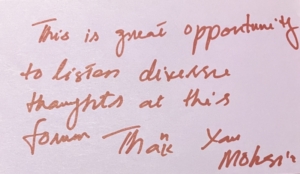 This is great opportunity
to listen diverse
thoughts at this
forum Thank You
Mohsin